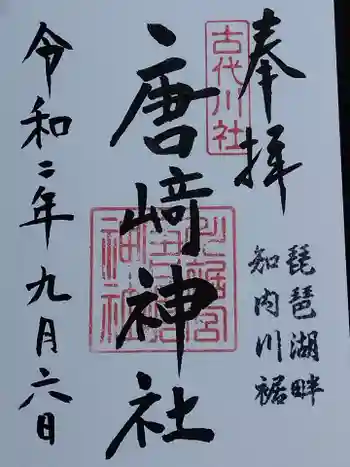 奉拝
古代川社
琵琶湖畔
知内川裾
唐崎神社
令和二年九月六日